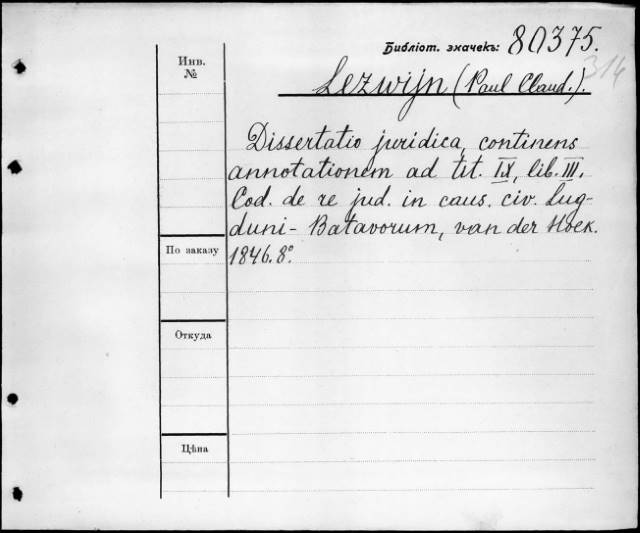 Библіот. значекъ: 80375.
314
Инв.
№
Lezwijn (Paul Claud.).
Dissertatio juridica, continens
annotationem ad tit. IX, lib. III.
Cod. de re jud. in caus. civ. Lug-
duni-Batavorum, van der Hoek.
1846. 8°.
По заказу
Откуда
Цѣна